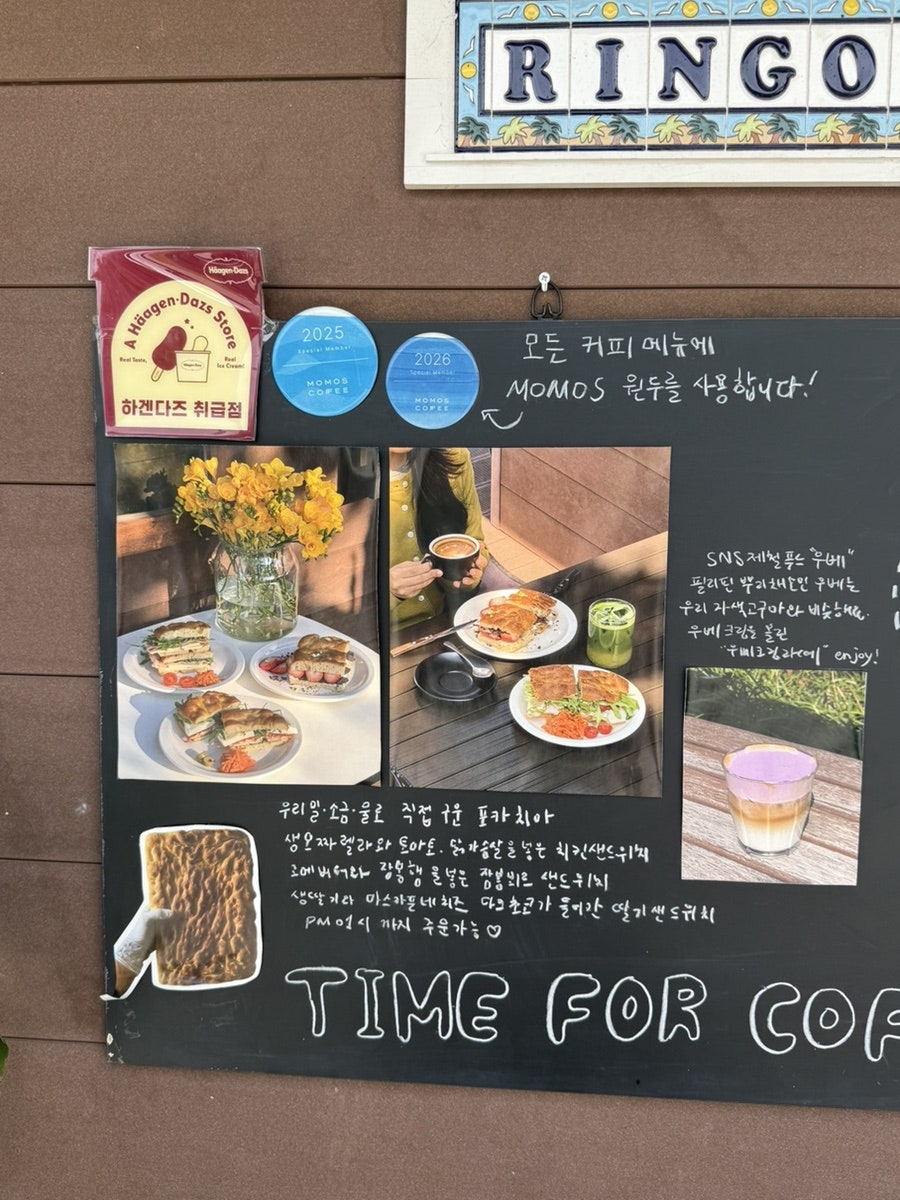 RINGO
Häagen-Dazs
A Häagen-Dazs Store
Real Taste,
Real
Ice Cream!
하겐다즈 취급점
2025
Special Member
MOMOS
COFFEE
2026
Special Member
MOMOS
COFFEE
모든 커피 메뉴에
MOMOS 원두를 사용합니다!
SNS 제철 푸드 "우베"
필리핀 뿌리채소인 우베는
우리 자색고구마와 비슷해요.
우베크림을 올린
"우베크림라떼" enjoy!
우리밀·소금·물로 직접 구운 포카치아
생모짜렐라와 토마토. 닭가슴살을 넣은 치킨샌드위치
고메버터와 잠봉햄을 넣은 잠봉뵈르 샌드위치
생딸기와 마스카포네치즈 다크초코가 들어간 딸기샌드위치
까지 주문가능♡
TIME FOR COF